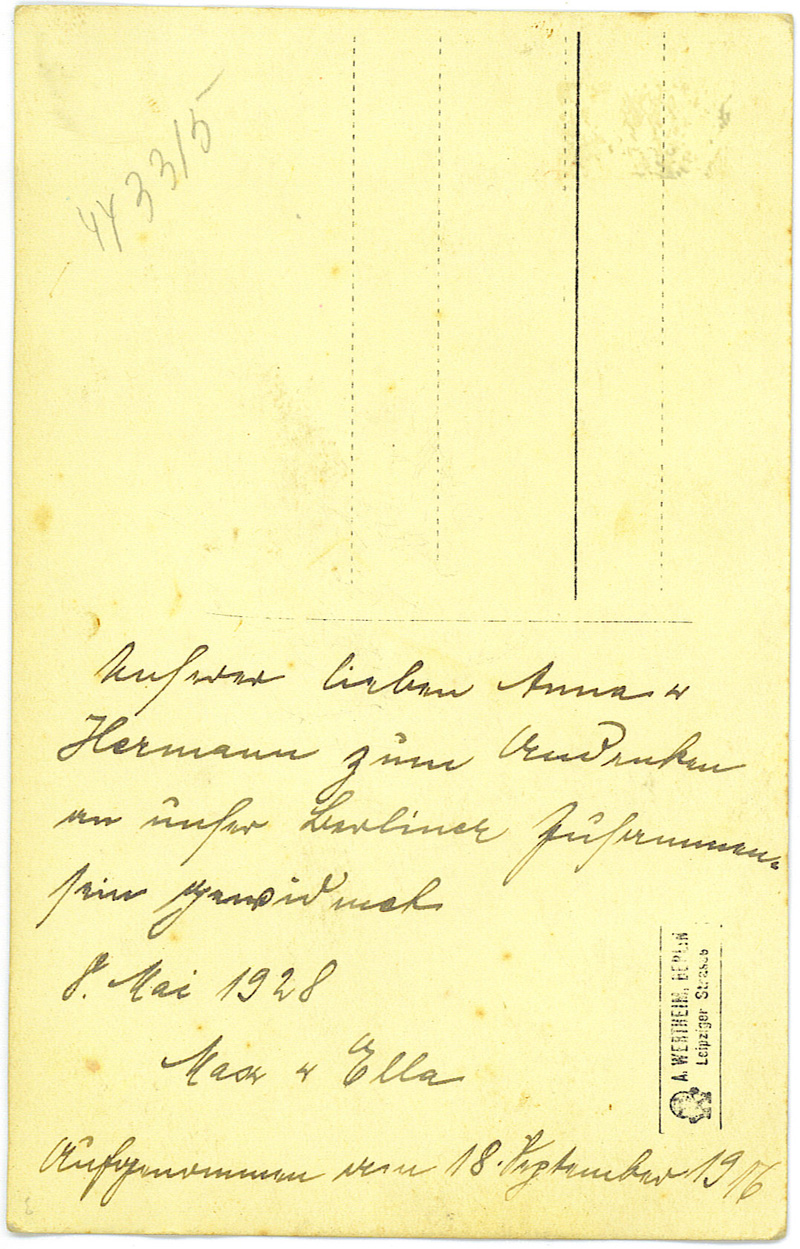 44 33/5
Unserer lieben Anna u
Hermann zum Andenken
an unser Berliner Zusammen-
sein gewidmet
8. Mai 1928
Max u Ella
A. WERTHEIM, BERLIN
Leipziger Strasse
Aufgenommen am 18. September 1916